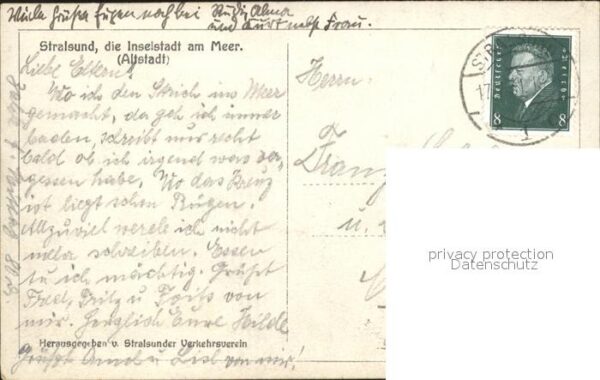 Viele Grüße Eugen noch bei Alma
und Kurt nebst Frau.
Stralsund, die Inselstadt am Meer.
(Altstadt)
Liebe Eltern!
Wo ich den Strich ins Meer
gemacht, da geh ich immer
baden, schreibt nur recht
bald ob ich irgend was ver-
gessen habe. Wo das Kreuz
ist liegt schon Rügen.
Allzuviel werde ich nicht
mehr schreiben. Essen
tu ich mächtig. Grüßt
Fred, Fritz u von
mir. Herzlich Eure Hilde
Herausgegeben v. Stralsunder Verkehrsverein
Grüßt u von mir!
Herrn
Franz
u.
Deutsches Reich
8 8
17
privacy protection
Datenschutz